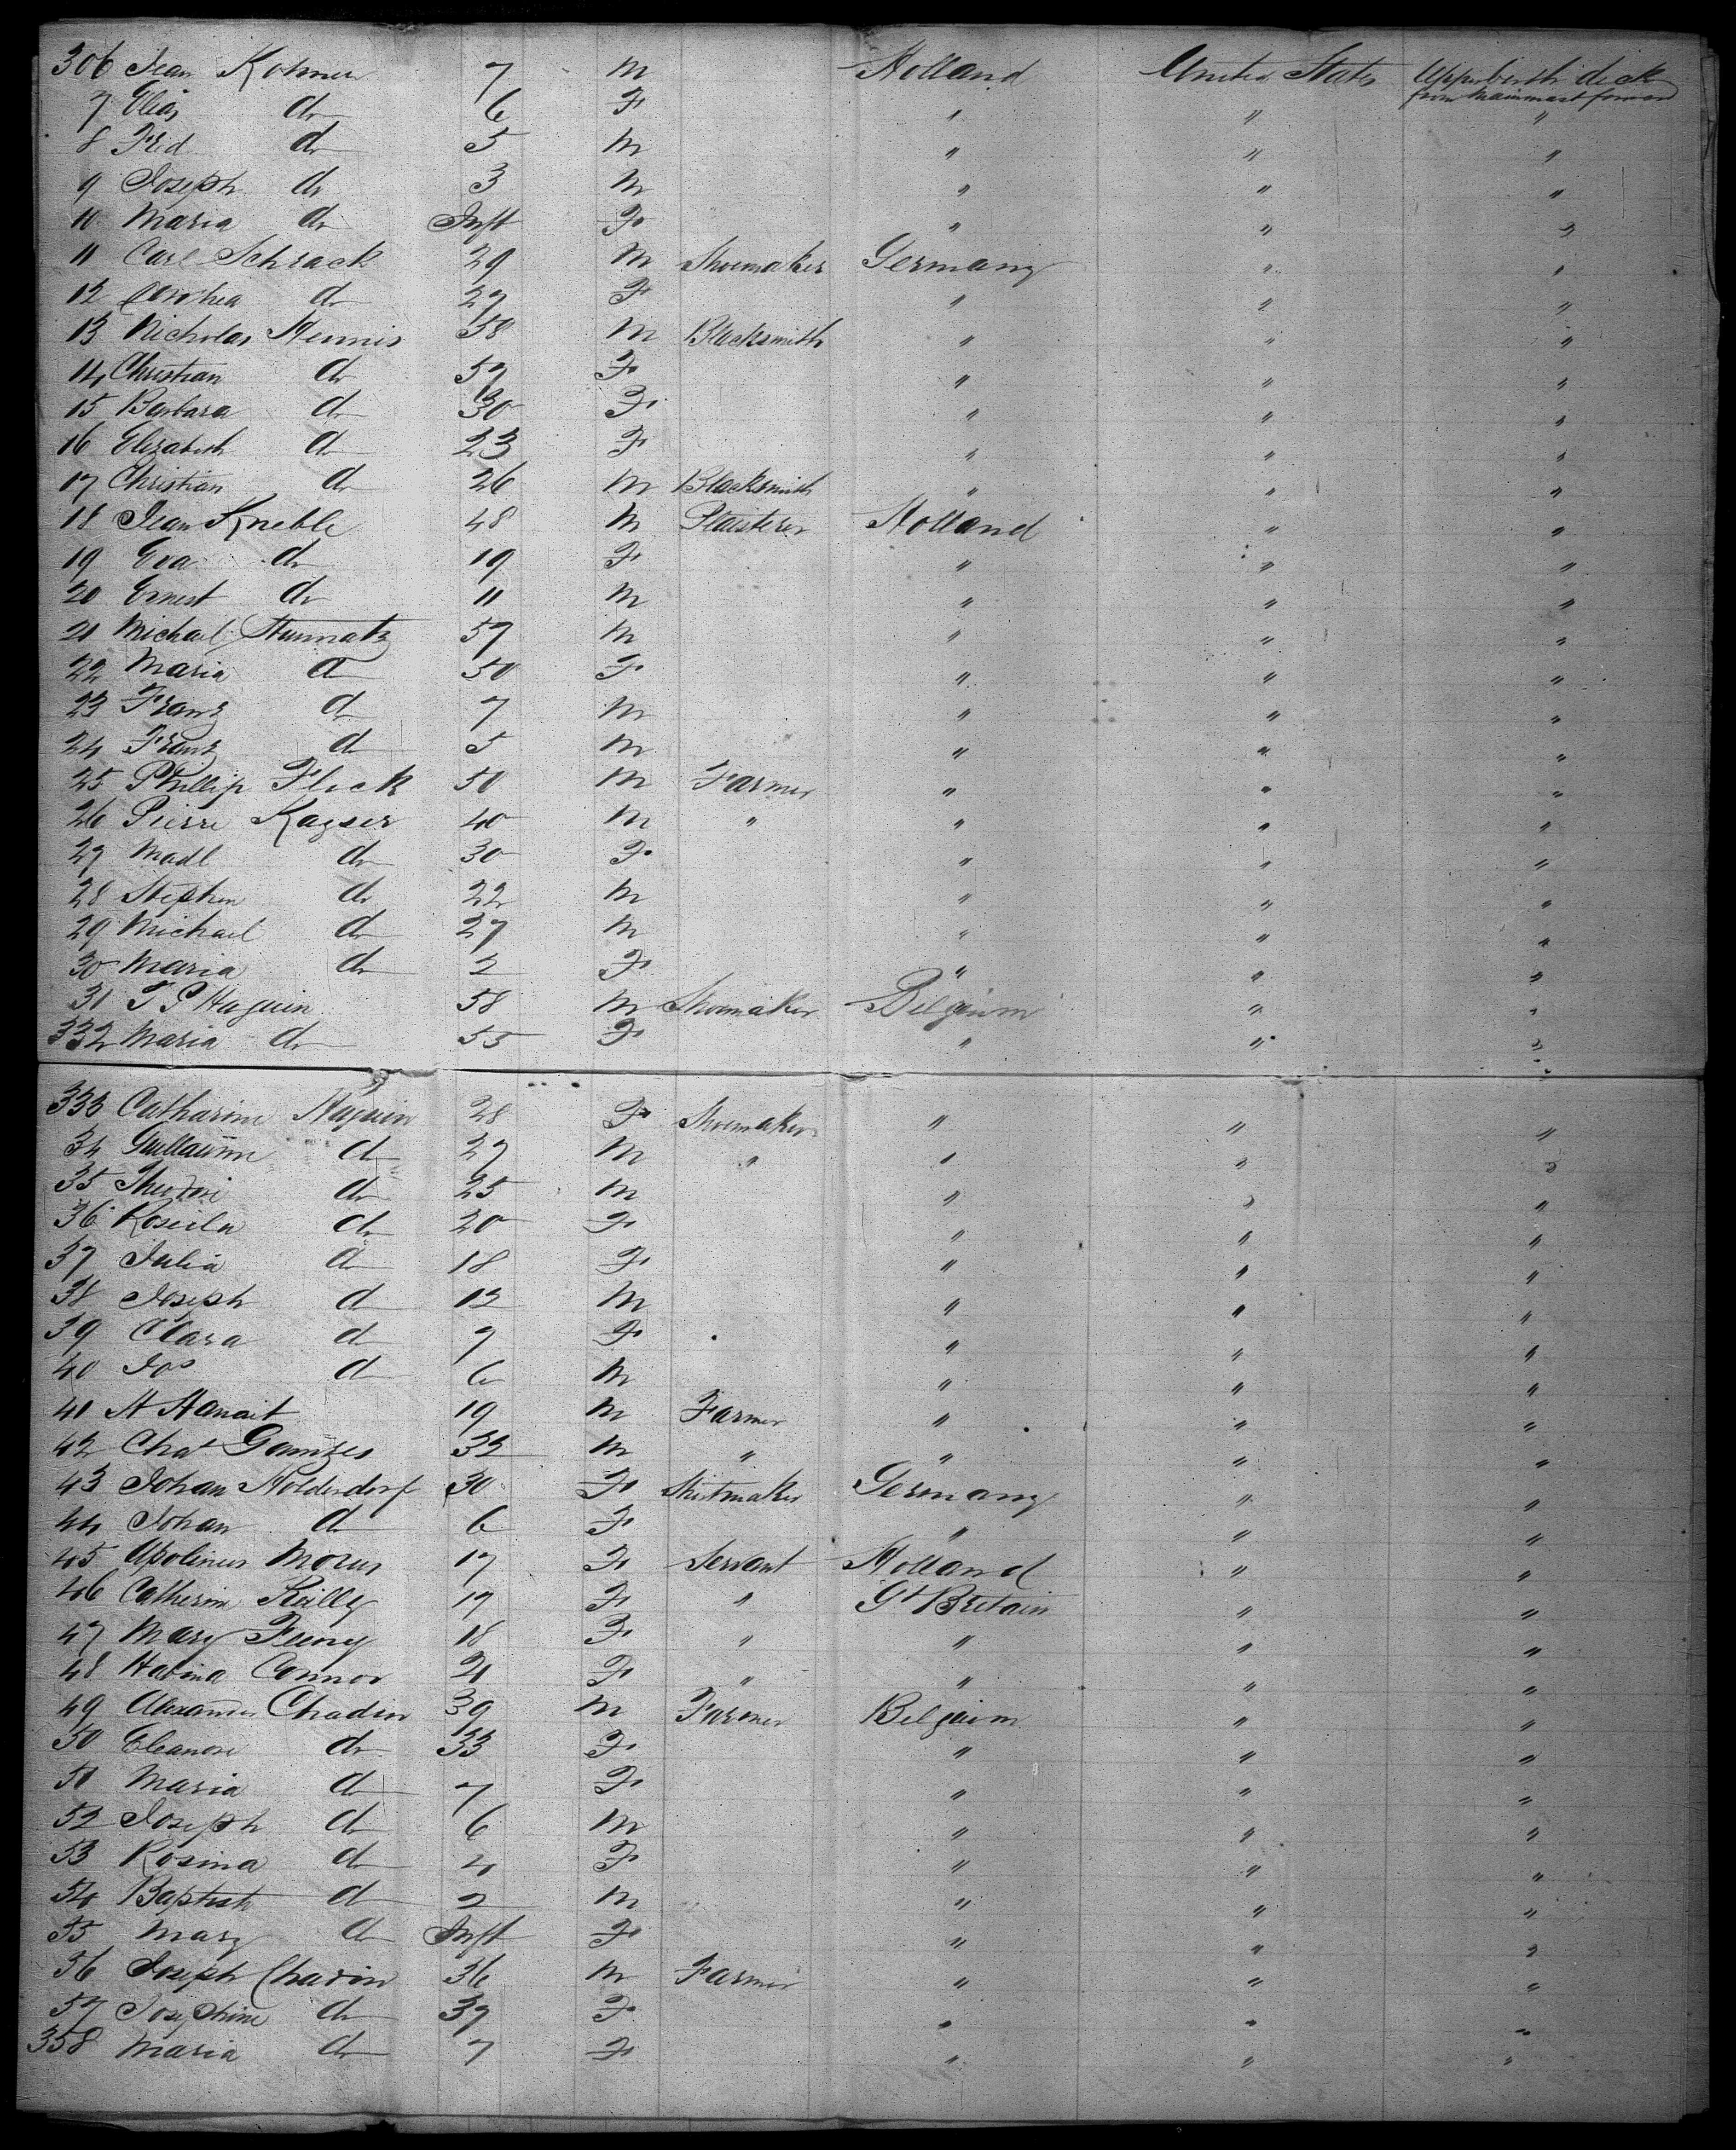 306 Jean Kohner 7 M Holland United States Upper berth deck
from Mainmast forward
7 Elis do 6 F " " "
8 Fred do 5 M " " "
9 Joseph do 3 M " " "
10 Maria do Inft F " " "
11 Carl Schrack 29 M Shoemaker Germany " "
12 Dorothea do 27 F " " "
13 Nicholas Hennis 58 M Blacksmith " " "
14 Christian do 57 F " " "
15 Barbara do 30 F " " "
16 Elizabeth do 23 F " " "
17 Christian do 26 M Blacksmith " " "
18 Jean Kneble 48 M Plaisterer Holland " "
19 Eva do 19 F " " "
20 Ernest do 11 M " " "
21 Michael 57 M " " "
22 Maria do 50 F " " "
23 Franz do 7 M " " "
24 Franz do 5 M " " "
25 Phillip Fleck 50 M Farmer " " "
26 Pierre Kayser 40 M " " " "
27 Madl do 30 F " " "
28 Stephen do 22 M " " "
29 Michael do 27 M " " "
30 Maria do 2 F " " "
31 J P Haguin 58 M Shoemaker Belgium " "
332 Maria do 55 F " " "
333 Catharine Haguin 28 F Shoemaker " " "
34 Guillaume do 27 M " " " "
35 do 25 M " " "
36 do 20 F " " "
37 Julia do 18 F " " "
38 Joseph do 12 M " " "
39 Clara do 7 F " " "
40 Jos do 6 M " " "
41 H Hanait 19 M Farmer " " "
42 Chas 32 M " " " "
43 Johan Holderdorf 30 F Shirtmaker Germany " "
44 Johan do 6 F " " "
45 Apolinus Morus 17 F Servant Holland " "
46 Catherine Reilly 19 F " Gt Britain " "
47 Mary Feeny 18 F " " " "
48 Connor 21 F " " " "
49 Alexander Chadin 39 M Farmer Belgium " "
50 Eleanore do 33 F " " "
51 Maria do 7 F " " "
52 Joseph do 6 M " " "
53 Rosina do 4 F " " "
54 Baptist do 2 M " " "
55 Mary do Inft F " " "
56 Joseph Chadin 36 M Farmer " " "
57 Josephine do 37 F " " "
358 Maria do 7 F " " "